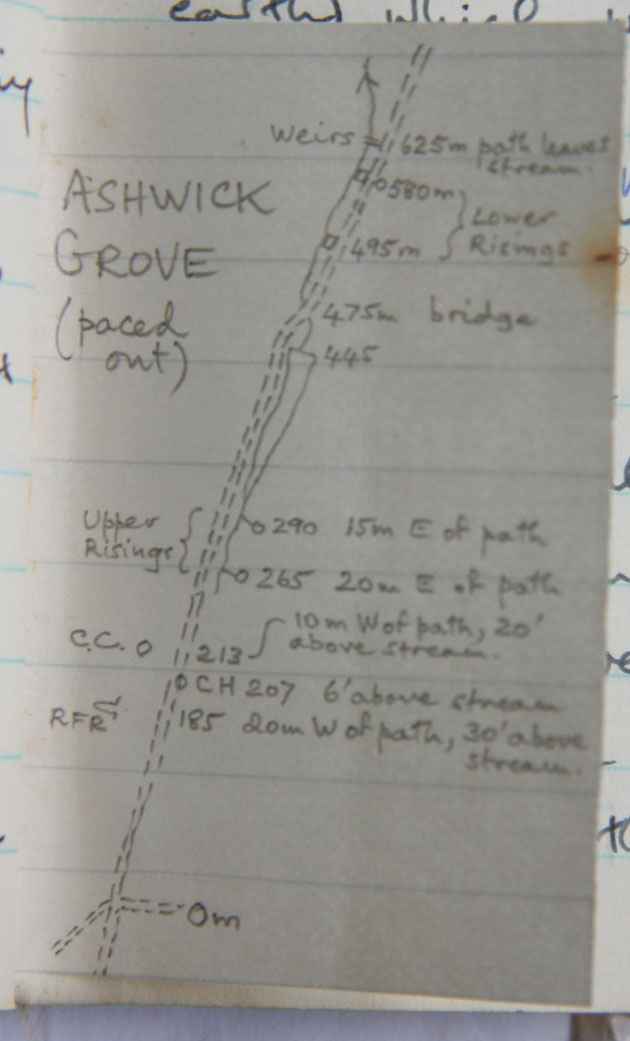 earths which
Weirs 625m path leaves
stream.
580m
ASHWICK
GROVE
(paced
out)
Lower
Risings
495m
475m bridge
445
Upper
Risings
290 15m E of path
265 20m E of path
C.C. 213 10m W of path, 20'
above stream.
CH 207 6' above stream
RFR 185 20m W of path, 30' above
stream.
0m